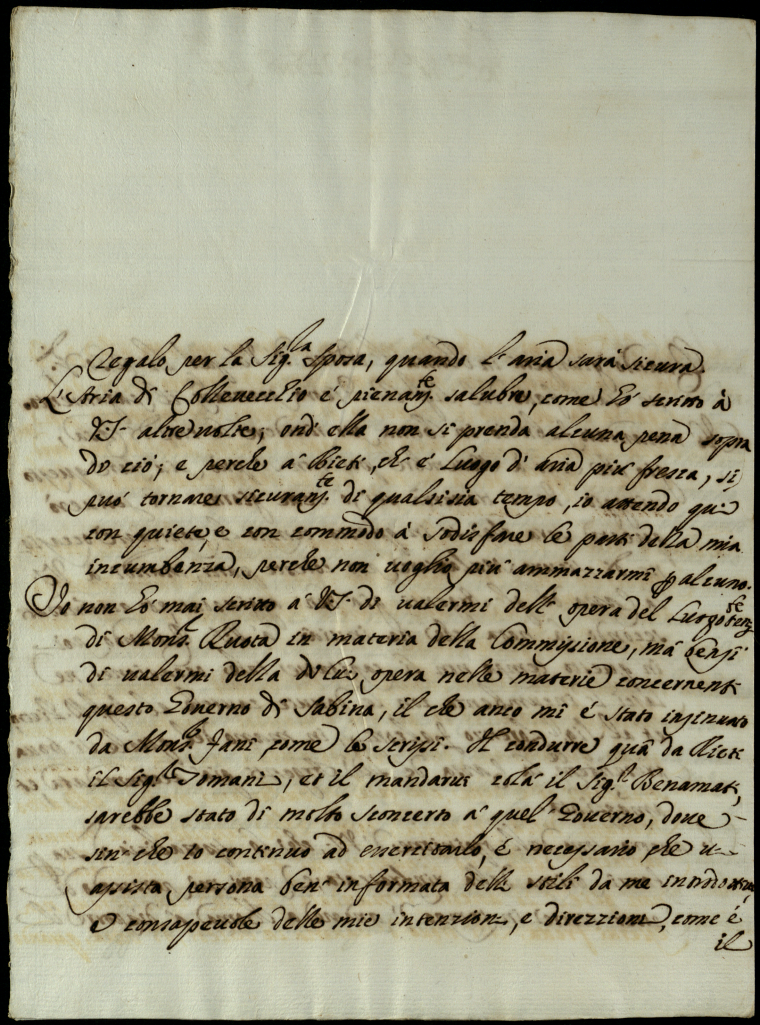 regalo per la Sig.ra Sposa, quando l'aria sarà sicura.
L'Aria di Collevecchio è pienam.te salubre, come hò scritto à
V.S. altre volte; ond'ella non si prenda alcuna pena sopra
di ciò; e perche à Rieti, ch'è luogo d'aria più fresca, si
può tornare sicuram.te di qualsisia tempo, io attendo quì
con quiete, e con commodo à sodisfare le parti della mia
incumbenza, perche non voglio più ammazzarmi p alcuno.
Io non hò mai scritto à V.S. di valermi dell'opera del Luogoten.te
di Mons.r Ruota in materia della Commissione, mà bensì
di valermi della di lui opera nelle materie concernenti
questo Governo di Sabina, il che anco mi è stato insinuato
da Mons.r Jani, come le scrissi. Il condurre quà da Rieti
il Sig.r Tomani, et il mandarvi colà il Sig.r Benamati,
sarebbe stato di molto sconcerto à quel Governo, dove
sin che io continuo ad esercitarlo, è necessario che v'
assista persona ben informata delli stili da me introdotti,
e consapevole delle mie intenzioni, e direzzioni, come è
il